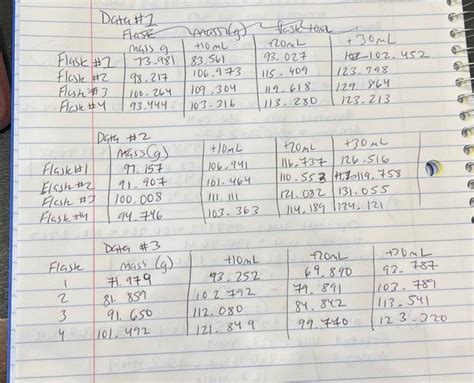 Data #1
Flask mass(g) flask
mass g +10mL +20mL +30mL
Flask #1 73.981 83.561 93.027 102.452
Flask #2 98.217 106.973 115.409 123.798
Flask #3 100.264 109.304 119.618 129.864
Flask #4 93.444 103.316 113.280 123.213
Data #2
mass(g) +10mL +20mL +30mL
Flask #1 97.157 106.941 116.737 126.516
Flask #2 91.907 101.464 110.553 119.758
Flask #3 100.008 111.111 121.082 131.055
Flask #4 94.746 103.363 114.189 124.121
Data #3
Flask mass (g) +10mL +20mL +30mL
1 71.979 93.252 69.890 93.787
2 81.859 102.792 79.891 103.789
3 91.650 112.080 84.842 113.541
4 101.492 121.849 99.740 123.320